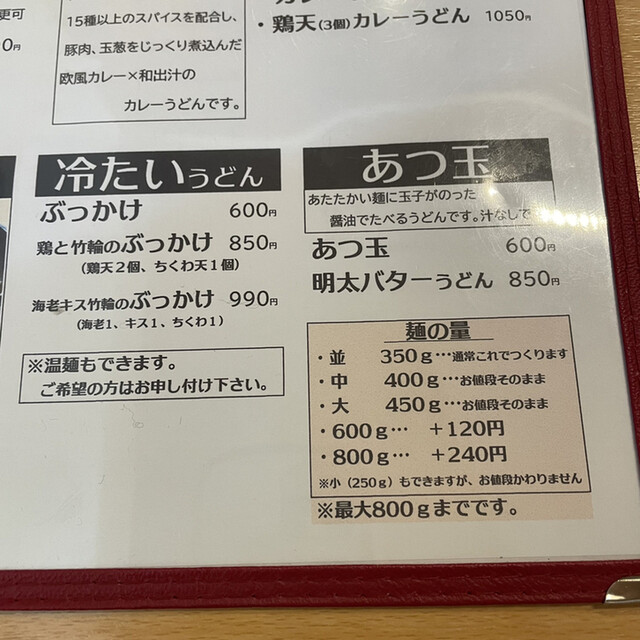 更可
0円
15種以上のスパイスを配合し、
豚肉、玉葱をじっくり煮込んだ
欧風カレー×和出汁の
カレーうどんです。
・鶏天(3個)カレーうどん 1050円
冷たいうどん
ぶっかけ 600円
鶏と竹輪のぶっかけ 850円
(鶏天2個、ちくわ天1個)
海老キス竹輪のぶっかけ 990円
(海老1、キス1、ちくわ1)
※温麺もできます。
ご希望の方はお申し付け下さい。
あつ玉
あたたかい麺に玉子がのった
醤油でたべるうどんです。汁なしで
あつ玉 600円
明太バターうどん 850円
麺の量
・並 350g…通常これでつくります
・中 400g…お値段そのまま
・大 450g…お値段そのまま
・600g… +120円
・800g… +240円
※小(250g)もできますが、お値段かわりません
※最大800gまでです。